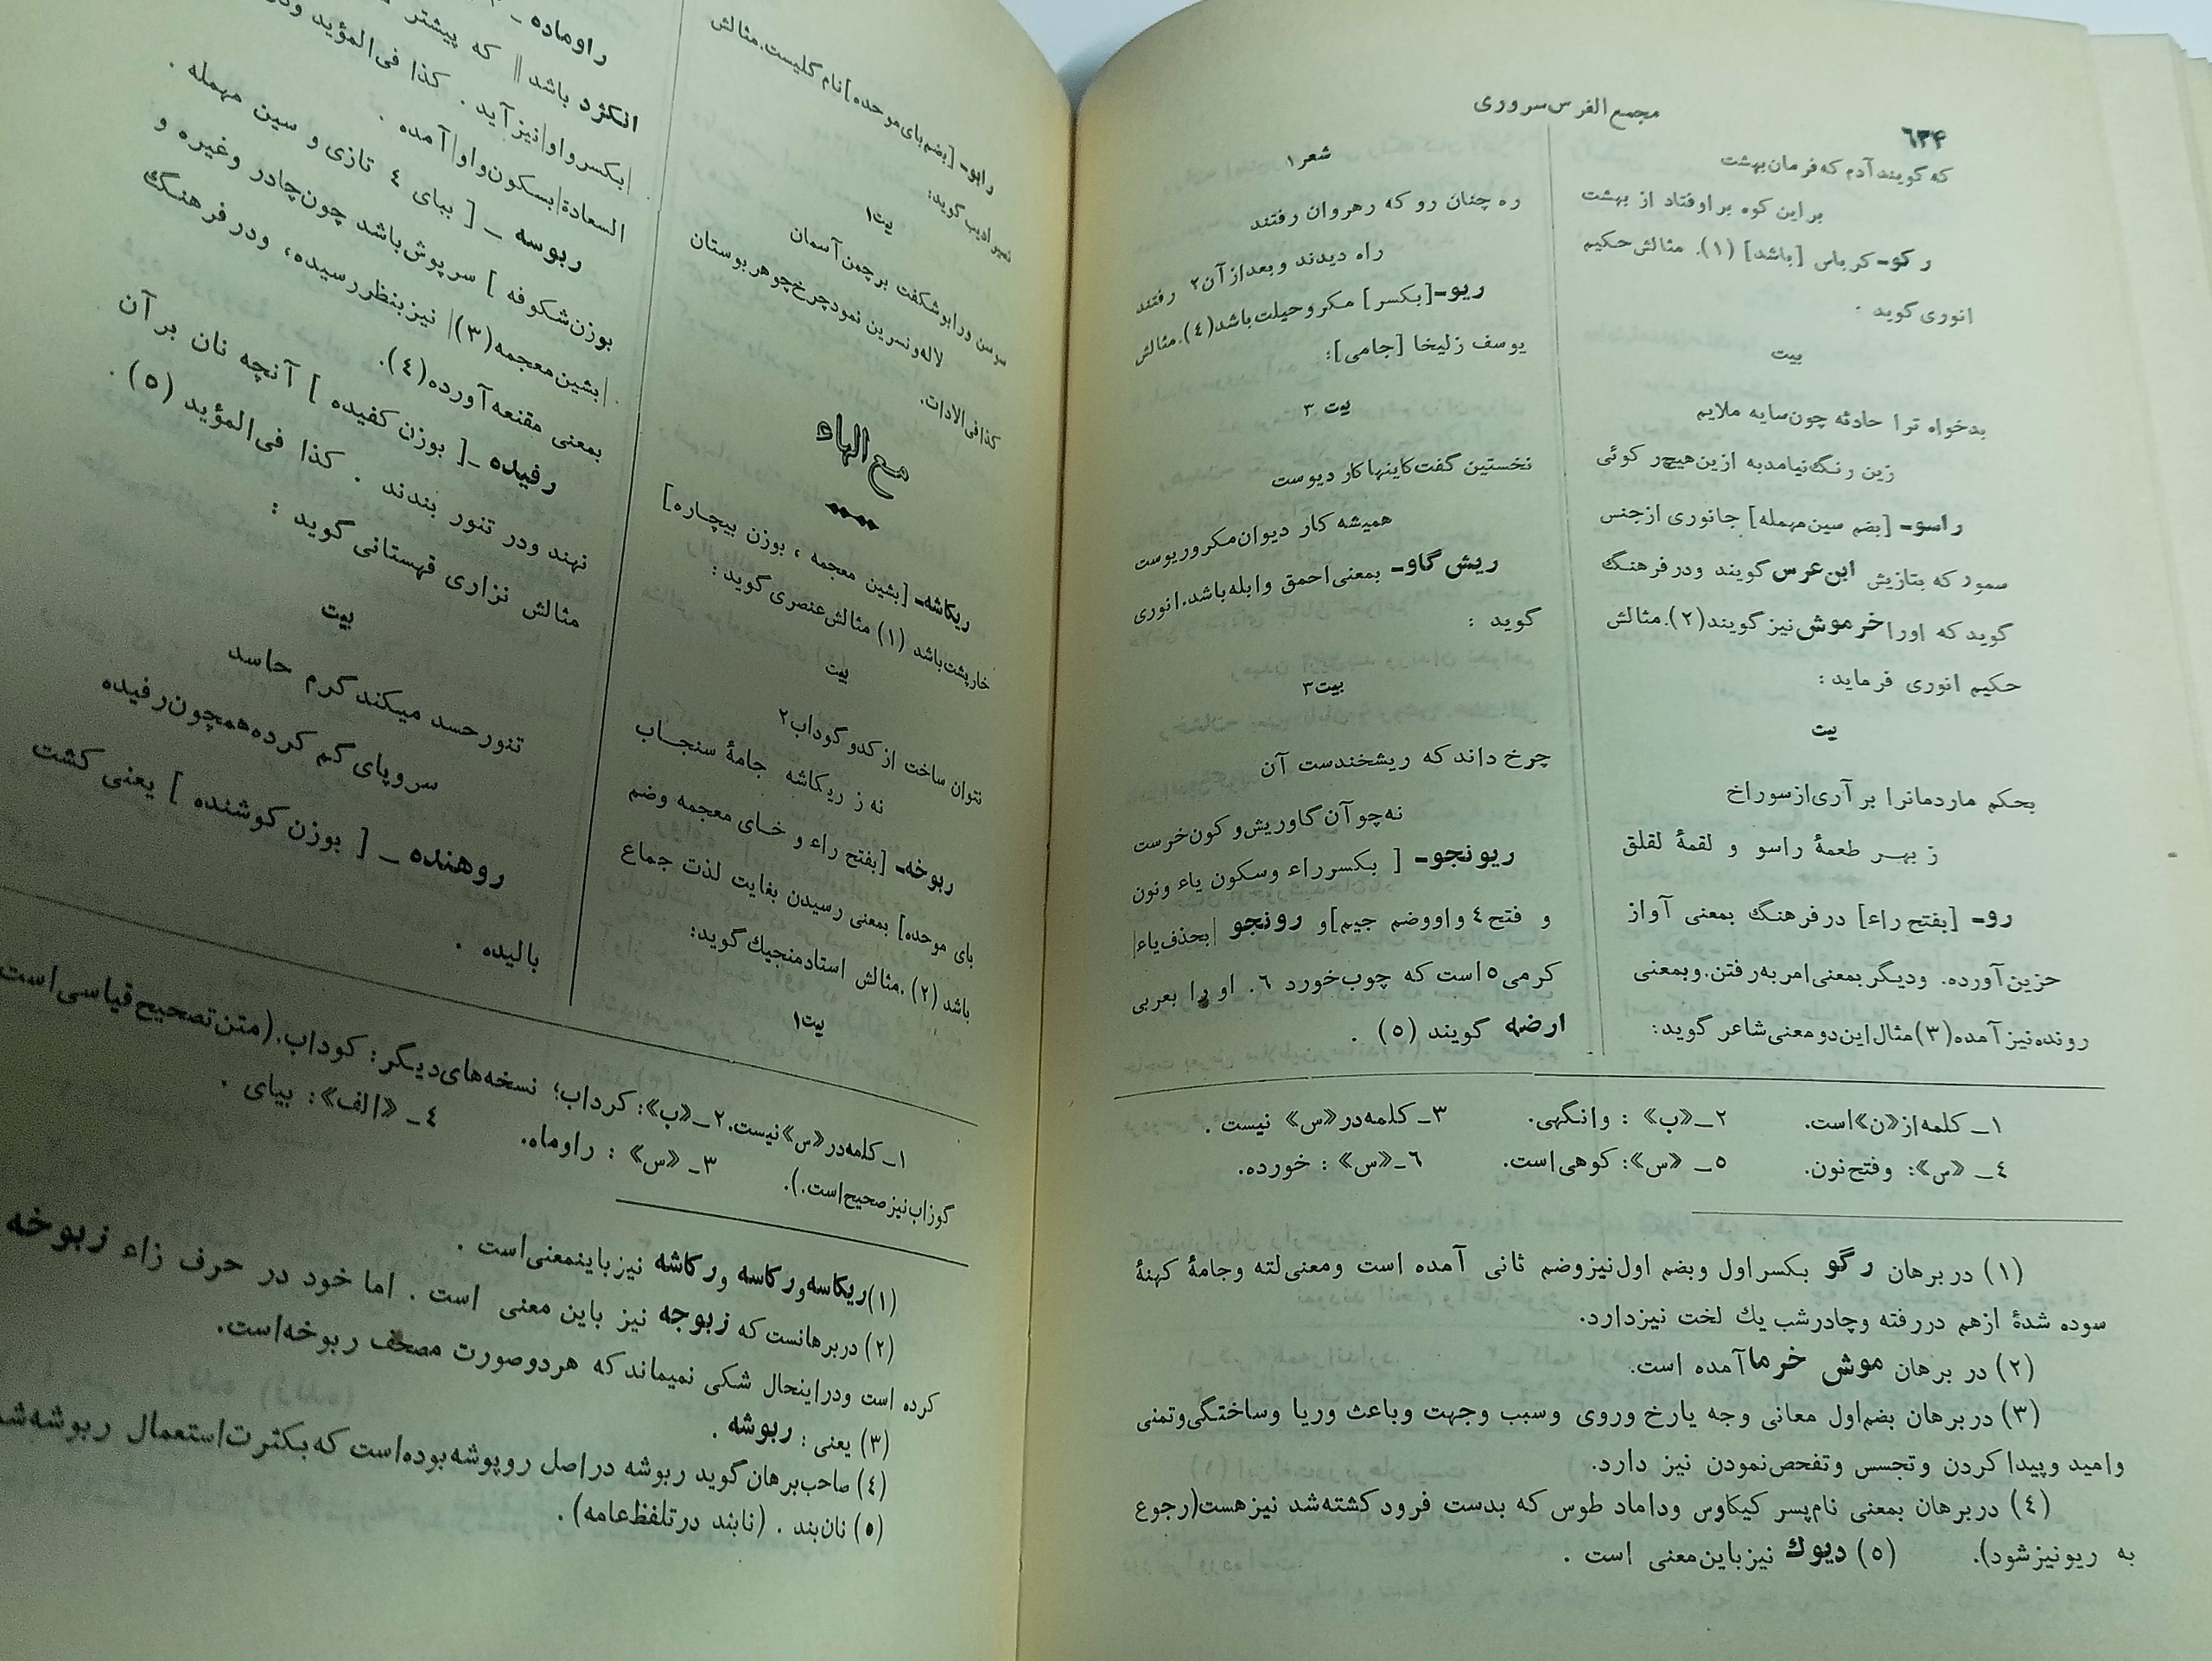 ۶۳۴
مجمع الفرس سروری
که گویند آدم که فرمان بهشت
بر این کوه بر اوفتاد از بهشت
رکو- کرباس [باشد] (۱). مثالش حکیم
انوری گوید .
بیت
بدخواه ترا حادثه چون سایه ملایم
زین رنگ نیامد به ازین هیچ رکوئی
راسو- [بضم سین مهمله] جانوری از جنس
سمور که بتازیش ابن عرس گویند و در فرهنگ
گوید که او را خرموش نیز گویند (۲). مثالش
حکیم انوری فرماید :
بیت
بحکم ماردمانرا بر آری از سوراخ
ز بهر طعمهٔ راسو و لقمهٔ لقلق
رو- [بفتح راء] در فرهنگ بمعنی آواز
حزین آورده. و دیگر بمعنی امر به رفتن. و بمعنی
رونده نیز آمده (۳) مثال این دو معنی شاعر گوید:
شعر ۱
ره چنان رو که رهروان رفتند
راه دیدند و بعد از آن ۲ رفتند
ریو- [بکسر] مکر و حیلت باشد (٤). مثالش
یوسف زلیخا [جامی]:
بیت ۳
نخستین گفت کاینها کار دیوست
همیشه کار دیوان مکر و ریوست
ریش گاو- بمعنی احمق و ابله باشد. انوری
گوید :
بیت ۳
چرخ داند که ریشخندست آن
نه چو آن گاوریش و کون خرست
ریونجو- [ بکسر راء و سکون یاء و نون
و فتح ٤ واو و ضم جیم] و رونجو |بحذف یاء|
کرمی ٥ است که چوب خورد ٦. او را بعربی
ارضه گویند (٥) .
۱_ کلمه از «ن» است. ۲_ «ب» : وانگهی. ۳_ کلمه در «س» نیست .
٤_ «س»: و فتح نون. ٥_ «س»: کوهی است. ٦_ «س» : خورده.
(۱) در برهان رگو بکسر اول و بضم اول نیز و ضم ثانی آمده است و معنی لته و جامهٔ کهنهٔ
سوده شدهٔ از هم در رفته و چادر شب یك لخت نیز دارد.
(۲) در برهان موش خرما آمده است.
(۳) در برهان بضم اول معانی وجه یا رخ و روی و سبب و جهت و باعث و ریا و ساختگی و تمنی
و امید و پیدا کردن و تجسس و تفحص نمودن نیز دارد.
(٤) در برهان بمعنی نام پسر کیکاوس و داماد طوس که بدست فرود کشته شد نیز هست (رجوع
به ریونیز شود). (٥) دیوك نیز باین معنی است .
رابو- [بضم بای موحده] نام گلیست. مثالش
نصیر ادیب گوید:
بیت ۱
سوسن و رابو شگفت بر چمن آسمان
لاله و نسرین نمود چرخ چو هر بوستان
کذا فی الادات.
مع الهاء
ریکاشه- [بشین معجمه ، بوزن بیچاره]
خارپشت باشد (۱) مثالش عنصری گوید:
بیت
نتوان ساخت از کدو گوداب ۲
نه ز ریکاشه جامهٔ سنجاب
ربوخه- [بفتح راء و خای معجمه و ضم
بای موحده] بمعنی رسیدن بغایت لذت جماع
باشد (۲). مثالش استاد منجیك گوید:
بیت ۱
راوماده _
انگژد باشد || که پیشتر
|بکسر واو| نیز آید . کذا فی المؤید
السعادة |بسکون واو| آمده .
ربوسه _ [ ببای ٤ تازی و سین مهمله .
بوزن شکوفه ] سرپوش باشد چون چادر و غیره و
|بشین معجمه (۳)| نیز بنظر رسیده، و در فرهنگ
بمعنی مقنعه آورده (٤).
رفیده _ [ بوزن کفیده ] آنچه نان بر آن
نهند و در تنور بندند . کذا فی المؤید (٥) .
مثالش نزاری قهستانی گوید :
بیت
تنور حسد میکند گرم حاسد
سر و پای گم کرده همچون رفیده
روهنده _ [ بوزن کوشنده ] یعنی کشت
بالیده .
۱_ کلمه در «س» نیست. ۲_ «ب»: کرداب؛ نسخه های دیگر: کوداب. (متن تصحیح قیاسی است
گوزاب نیز صحیح است.). ۳_ «س» : راوماه. ٤_ «الف»: بیای .
(۱) ریکاسه و رکاسه و رکاشه نیز باینمعنی است .
(۲) در برهانست که زبوجه نیز باین معنی است . اما خود در حرف زاء زبوخه
کرده است و در اینحال شکی نمیماند که هر دو صورت مصحف ربوخه است.
(۳) یعنی : ربوشه .
(٤) صاحب برهان گوید ربوشه در اصل روپوشه بوده است که بکثرت استعمال ربوشه شد
(٥) نان بند . (نابند در تلفظ عامه) .